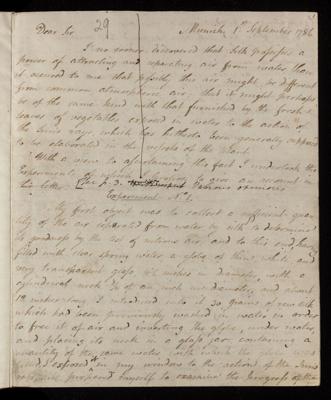 29
Munich, 1st September 1786
Dear Sir
I no sooner discovered that Silk possesses a
power of attracting and separating air from water than
it occurred to me that possibly this air might be different
from common atmospheric air, that it might perhaps
be of the same kind with that furnished by the fresh
leaves of vegetables exposed in water to the action of
the Suns rays, which has hitherto been generally supposed
to be elaborated in the vessels of the Plant.
With a view to ascertaining this fact I undertook the
Experiments of which to give an account in
this letter. See p. 3. various
Experiment No. 1.
My first object was to collect a sufficient quan-
tity of the air separated from water by silk to determine
its goodness by the test of nitrous air, and to this end, having
filled with clear spring water a globe of thin, white and
very transparent glass, 4½ inches in diameter, with a
cylindrical neck ¾ of an inch in diameter and about
12 inches long, I introduced into it 30 grains of raw silk
which had been previously washed in water in order
to free it of air and inverting the globe, under water,
and placing its neck in a glass jar containing a
quantity of the same water with which the globe was
filled I exposed it in my window to the action of the Suns
rays and prepared myself to examine the progress of the